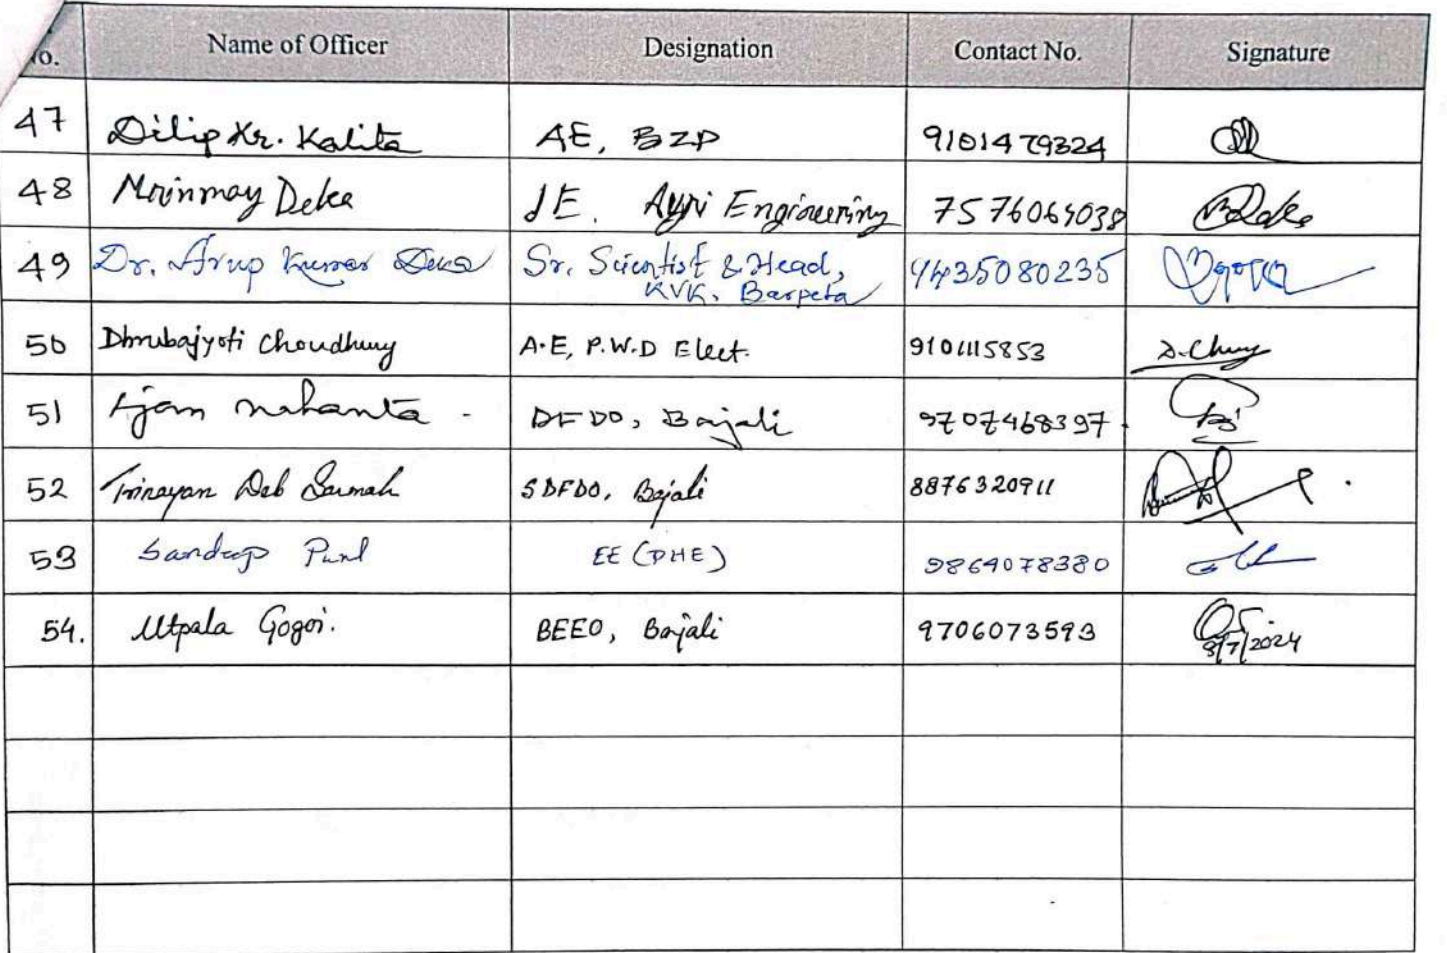 No. Name of Officer Designation Contact No. Signature
47 Dilip Kr. Kalita AE, BZP 9101479324
48 Mrinmay Deka JE. Agri Engineering 7576064038
49 Dr. Arup Kumar Deka Sr. Scientist & Head, 9435080235
KVK, Barpeta
50 Dhrubajyoti Choudhury A.E, P.W.D Elect. 9101115853 D. Chury
51 Mahanta DFDO, Bajali 9707468397
52 Trinayan Deb Sarmah SDFDO, Bajali 8876320911
53 Sandeep EE (PHE) 9864078380
54. Utpala Gogoi. BEEO, Bajali 9706073593
8/7/2024